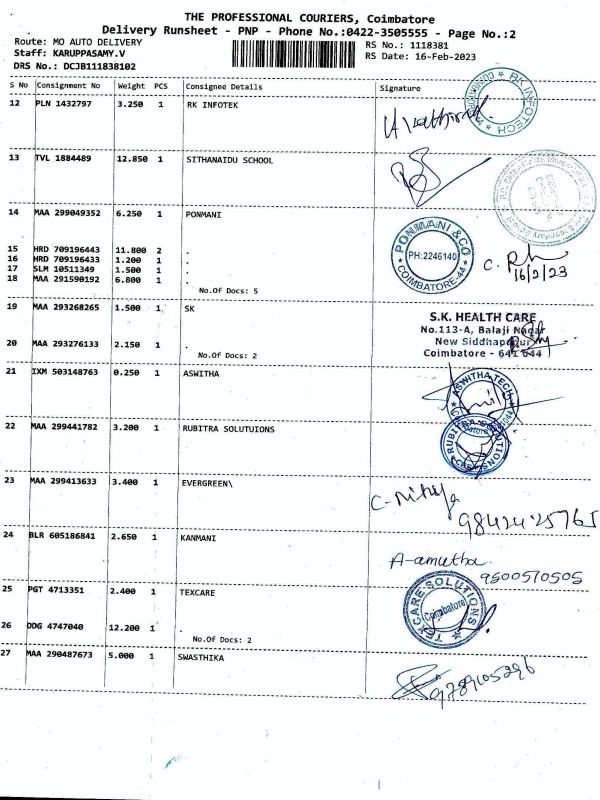 THE PROFESSIONAL COURIERS, Coimbatore
Delivery Runsheet - PNP - Phone No.:0422-3505555 - Page No.:2
Route: MO AUTO DELIVERY
RS No.: 1118381
Staff: KARUPPASAMY.V
RS Date: 16-Feb-2023
DRS No.: DCJB111838102
S No Consignment No Weight PCS Consignee Details Signature
12 PLN 1432797 3.250 1 RK INFOTEK
RK INFOTECH
13 TVL 1884489 12.850 1 SITHANAIDU SCHOOL
14 MAA 299049352 6.250 1 PONMANI
PONMANI & CO
PH:2246140
COIMBATORE-44
15 HRD 709196443 11.800 2 .
16 HRD 709196443 1.200 1 .
17 SLM 10511349 1.500 1 .
18 MAA 291590192 6.800 1 .
No.Of Docs: 5
16/2/23
19 MAA 293268265 1.500 1 SK
S.K. HEALTH CARE
No.113-A, Balaji Nagar
New Siddhapudur
Coimbatore - 641 044
20 MAA 293276133 2.150 1 .
No.Of Docs: 2
21 IXM 503148763 0.250 1 ASWITHA
ASWITHA TECH
22 MAA 299441782 3.200 1 RUBITRA SOLUTUIONS
RUBITRA SOLUTIONS
23 MAA 299413633 3.400 1 EVERGREEN\
C-Nithya
9842425765
24 BLR 605186841 2.650 1 KANMANI
A-amutha
9500570505
25 PGT 4713351 2.400 1 TEXCARE
TEXCARE SOLUTIONS
Coimbatore
26 DDG 4747040 12.200 1 .
No.Of Docs: 2
27 MAA 290487673 5.000 1 SWASTHIKA
9789105296